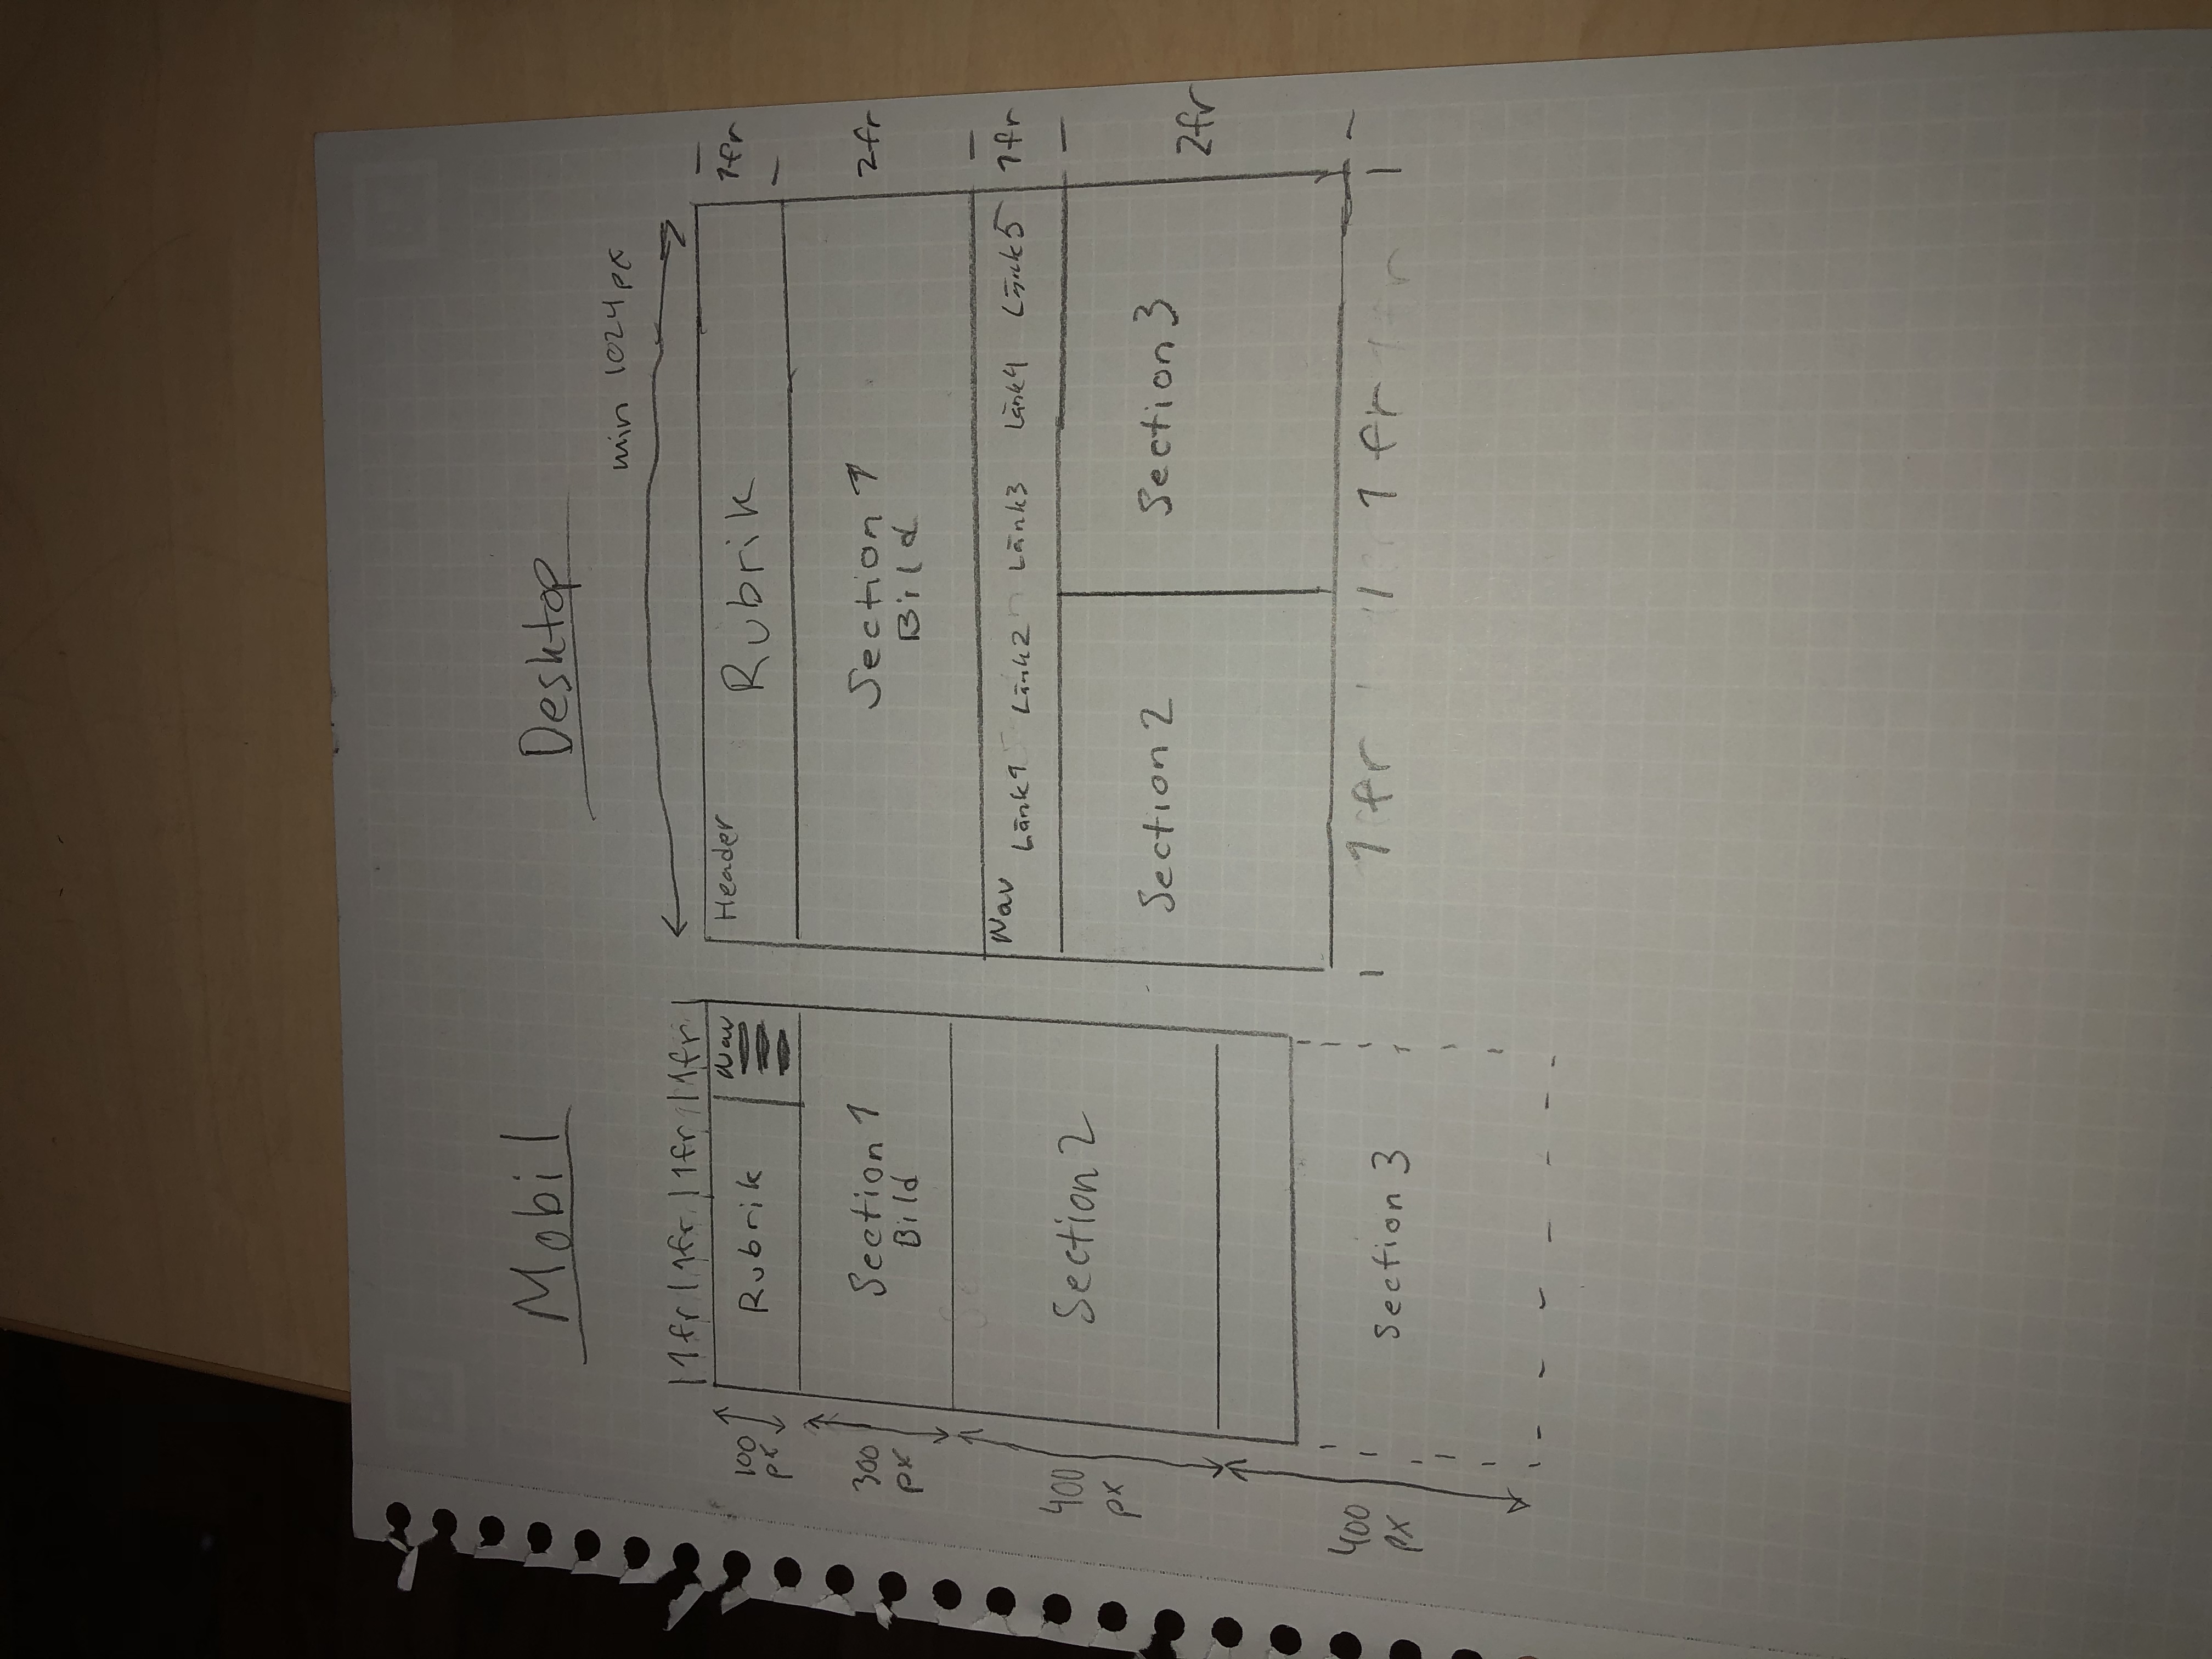 Mobil
1fr 1fr 1fr 1fr
100
px
Rubrik
Nav
300
px
Section 1
Bild
400
px
Section 2
400
px
Section 3
Desktop
min 1024px
Header
Rubrik
1fr
Section 1
Bild
2fr
Nav
Länk1 Länk2 Länk3 Länk4 Länk5
1fr
Section 2
Section 3
2fr
1 fr 1 fr